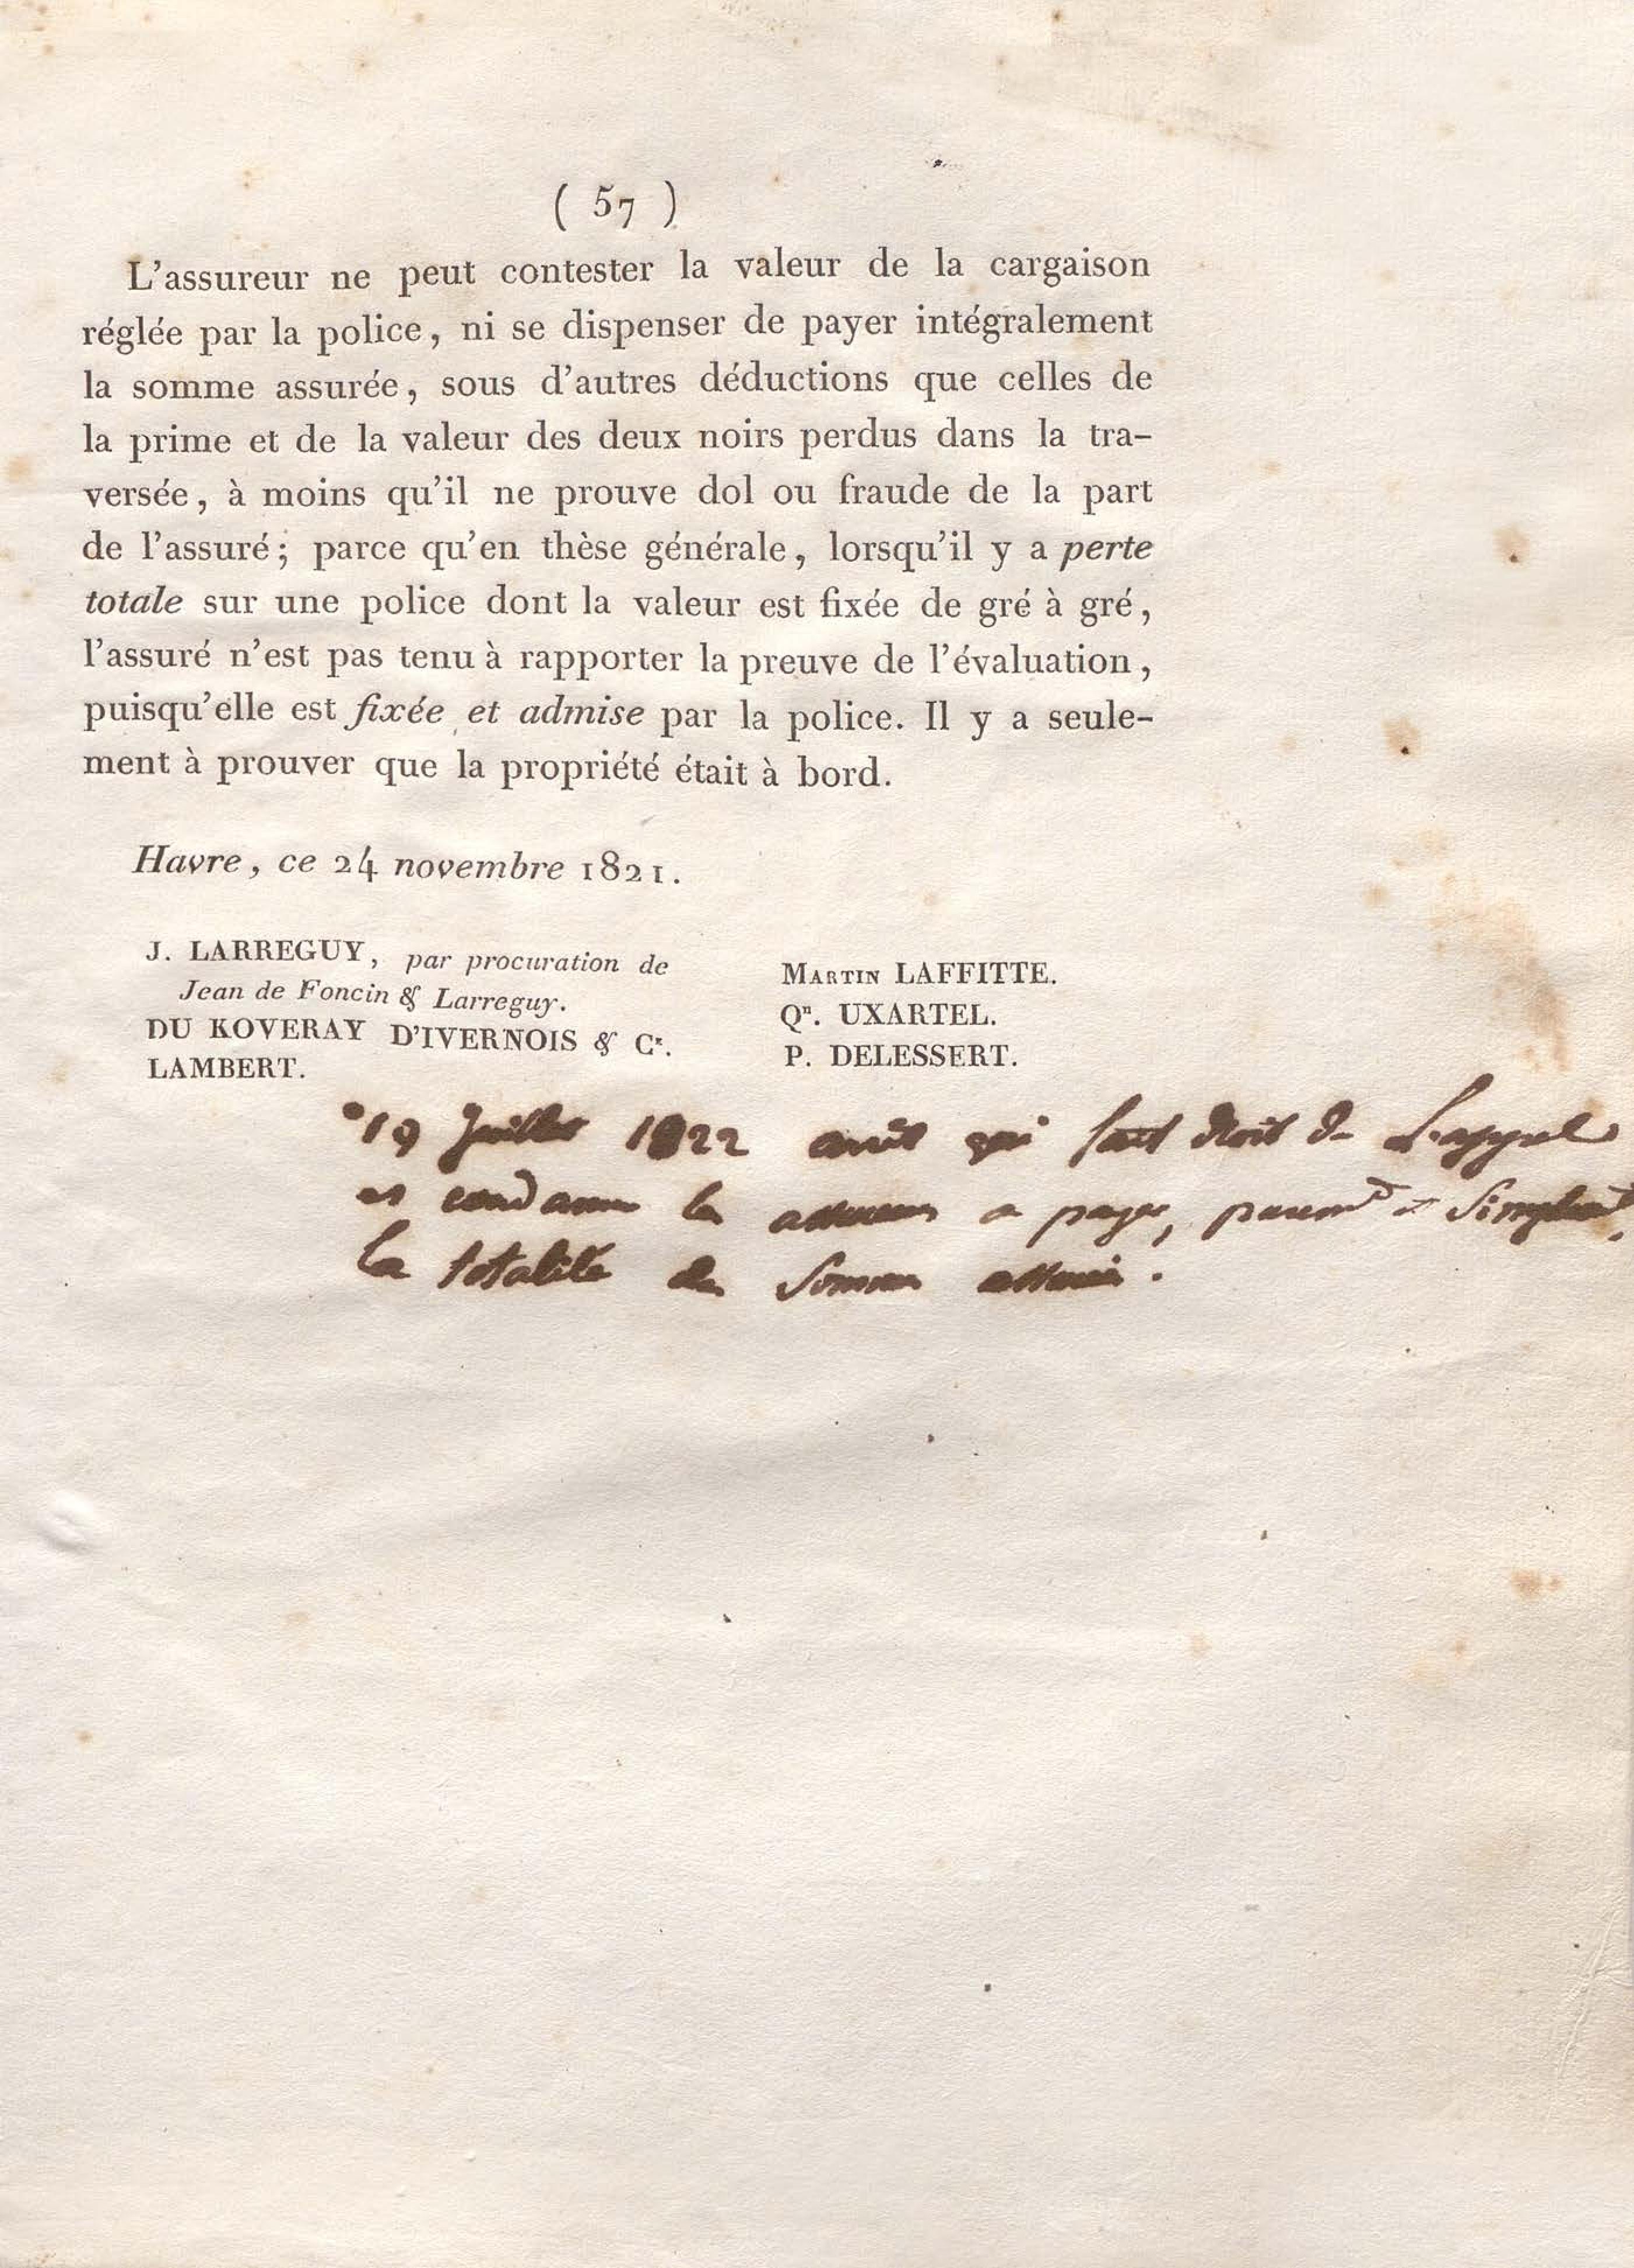 ( 57 )
L'assureur ne peut contester la valeur de la cargaison
réglée par la police, ni se dispenser de payer intégralement
la somme assurée, sous d'autres déductions que celles de
la prime et de la valeur des deux noirs perdus dans la tra-
versée, à moins qu'il ne prouve dol ou fraude de la part
de l'assuré; parce qu'en thèse générale, lorsqu'il y a perte
totale sur une police dont la valeur est fixée de gré à gré,
l'assuré n'est pas tenu à rapporter la preuve de l'évaluation,
puisqu'elle est fixée et admise par la police. Il y a seule-
ment à prouver que la propriété était à bord.
Havre, ce 24 novembre 1821.
J. LARREGUY, par procuration de
Jean de Foncin & Larreguy.
DU KOVERAY D'IVERNOIS & Ce.
LAMBERT.
Martin LAFFITTE.
Qn. UXARTEL.
P. DELESSERT.
19 Juillet 1822 arrêt qui fait droit de L'appel
et condamne les assureurs a payer, purem.t et Simplem.t,
la totalité des Sommes assurées.